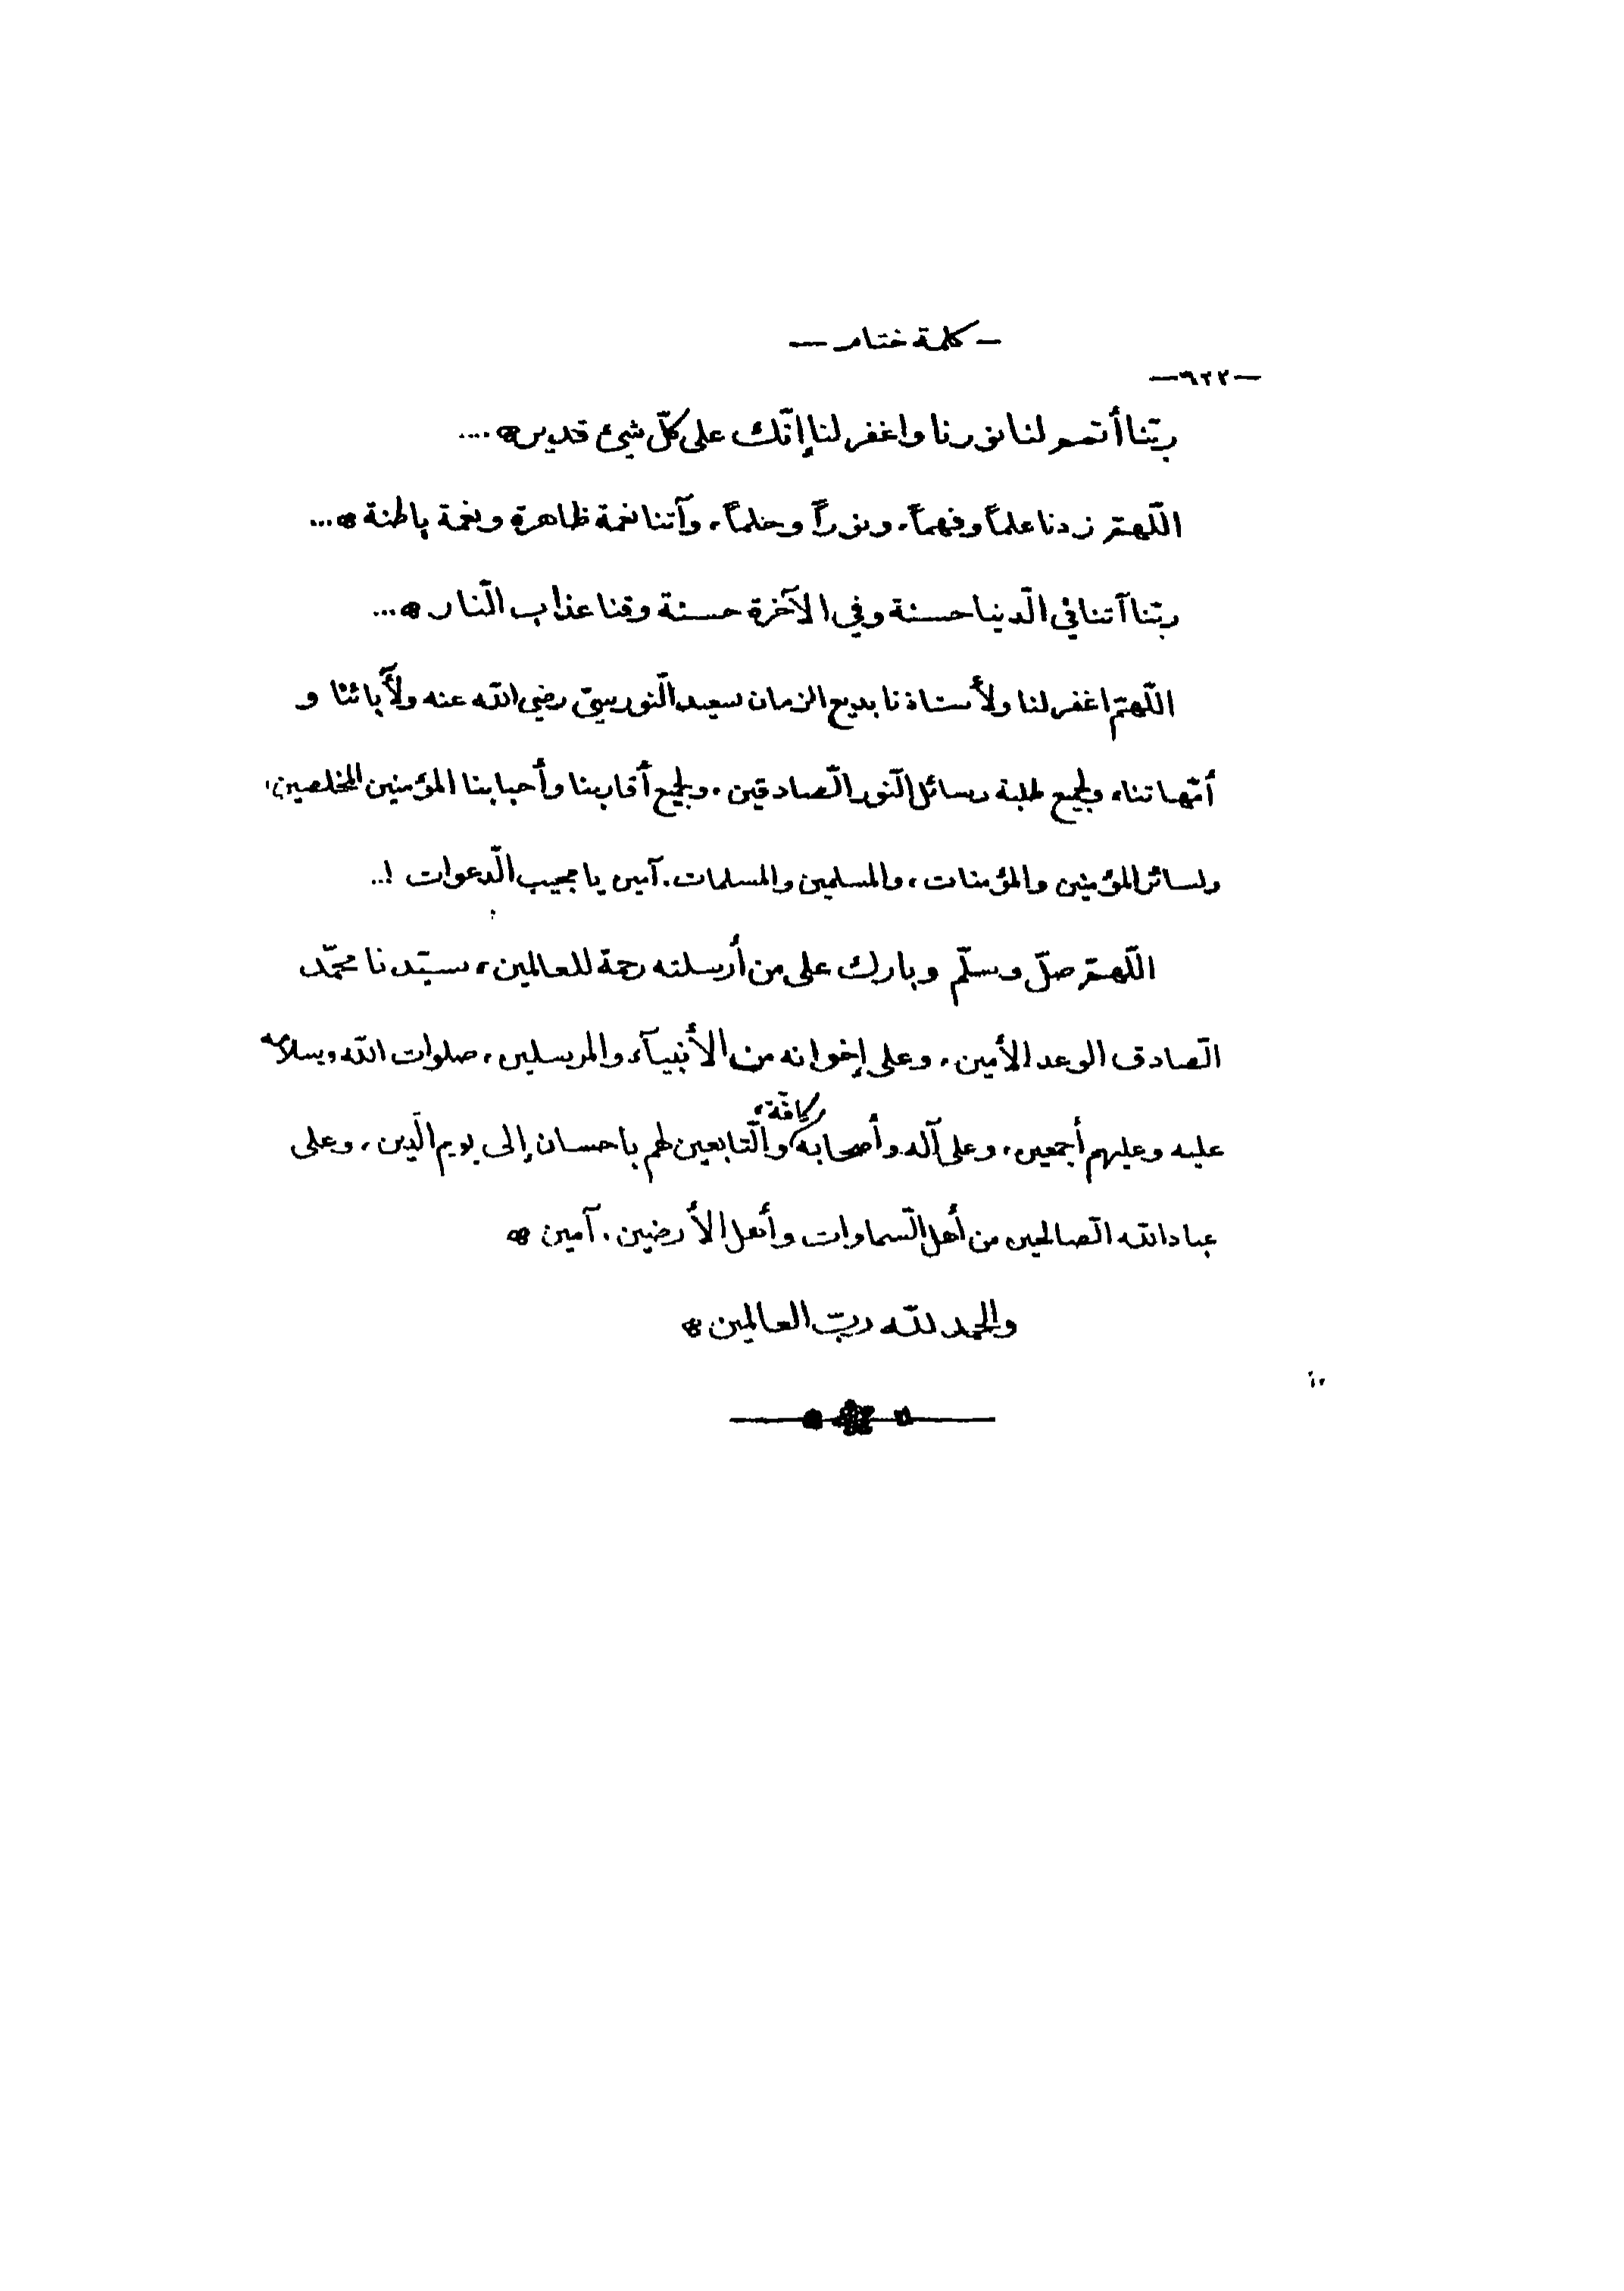 – كلمة ختام –
–٦٢٢–
ربّنا أتمم لنا نورنا واغفر لنا إنّك على كلّ شيئ قدير ....
اللّهمّ زدنا علماً وفهماً، ونوراً وحلماً، وآتنا نعمة ظاهرة ونعمة باطنة ...
ربّنا آتنا في الّدنيا حسنة وفي الآخرة حسنة وقنا عذاب الّنار ...
اللّهمّ اغفر لنا ولأستاذنا بديع الزمان سعيد الّنورسيّ رضي اللّه عنه ولأبائنا و
أمّهاتنا، ولجميع طلبة رسائل الّنور الّصادقين، ولجميع أقاربنا وأحبابنا المؤمنين المخلصين،
ولسائر المؤمنين والمؤمنات، والمسلمين والمسلمات. آمين يا مجيب الّدعوات !..
اللّهمّ صلّ وسلّم وبارك على من أرسلته رحمة للعالمين، سيّدنا محمّد
الّصادق الوعد الأمين، وعلى إخوانه من الأنبيآء والمرسلين، صلوات اللّه وسلامه
عليه وعليهم أجمعين، وعلى آله وأصحابه كافّة، والّتابعين لهم باحسان إلى يويم الّدين، وعلى
عباد اللّه الّصالحين من أهل الّسماوات وأهل الأرضين. آمين
والحمد للّه ربّ العالمين